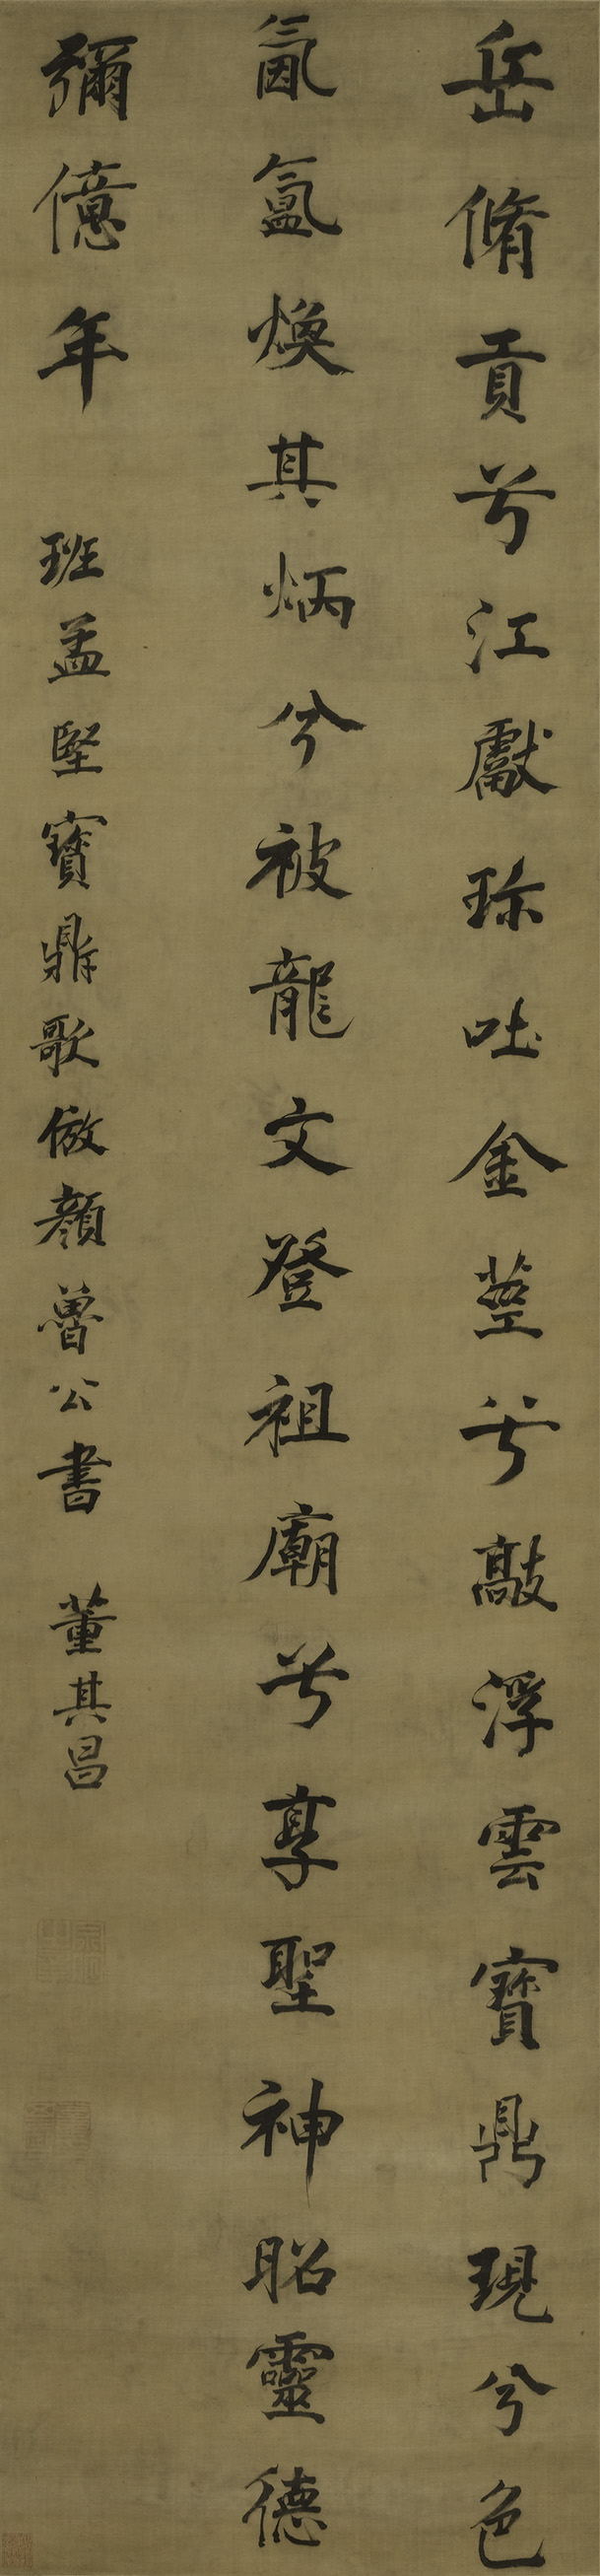 岳脩貢兮江獻珎吐金莖兮敲浮雲寶鼎現兮色
氤氳煥其炳兮被龍文登祖廟兮享聖神昭靈德
彌億年 班孟堅寶鼎歌倣顏魯公書 董其昌